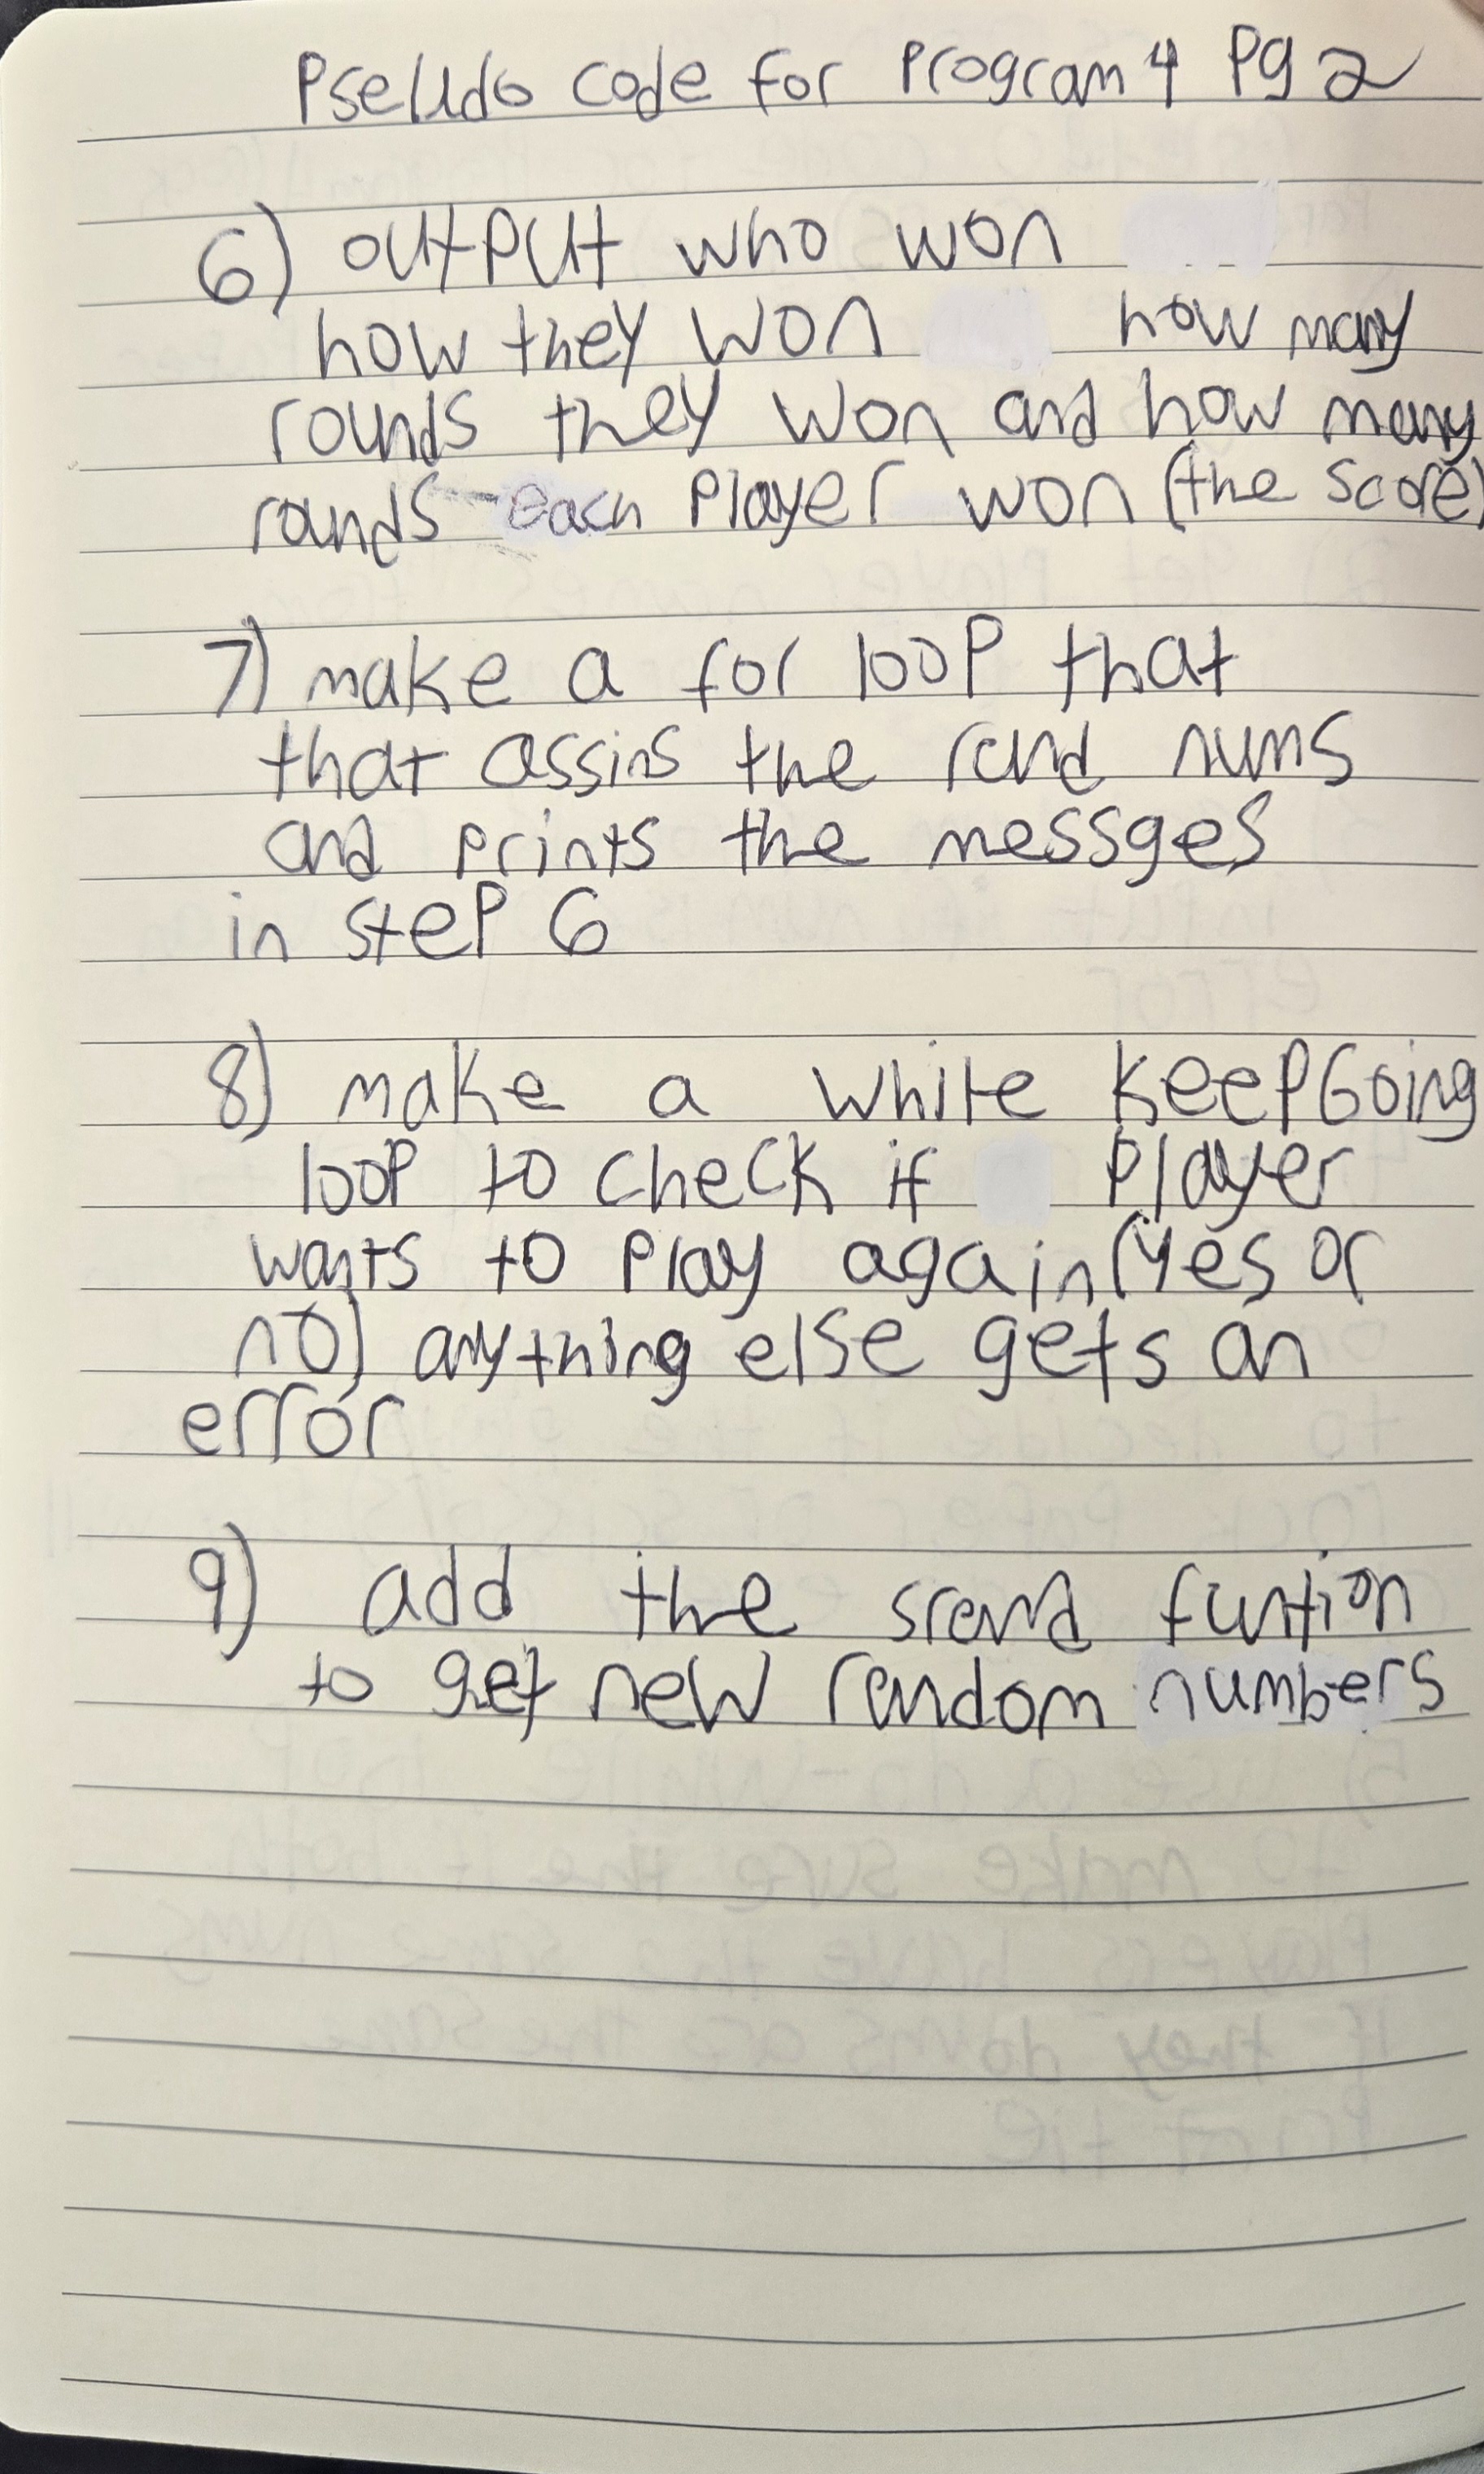 Pseudo code for Program 4 Pg 2
6) output who won
how they won how many
rounds they won and how many
rounds each Player won (the score)
7) make a for loop that
that assins the rand nums
and prints the messges
in step 6
8) make a while keepGoing
loop to check if Player
wants to Play again (yes or
no) anything else gets an
error
9) add the srand funtion
to get new random numbers